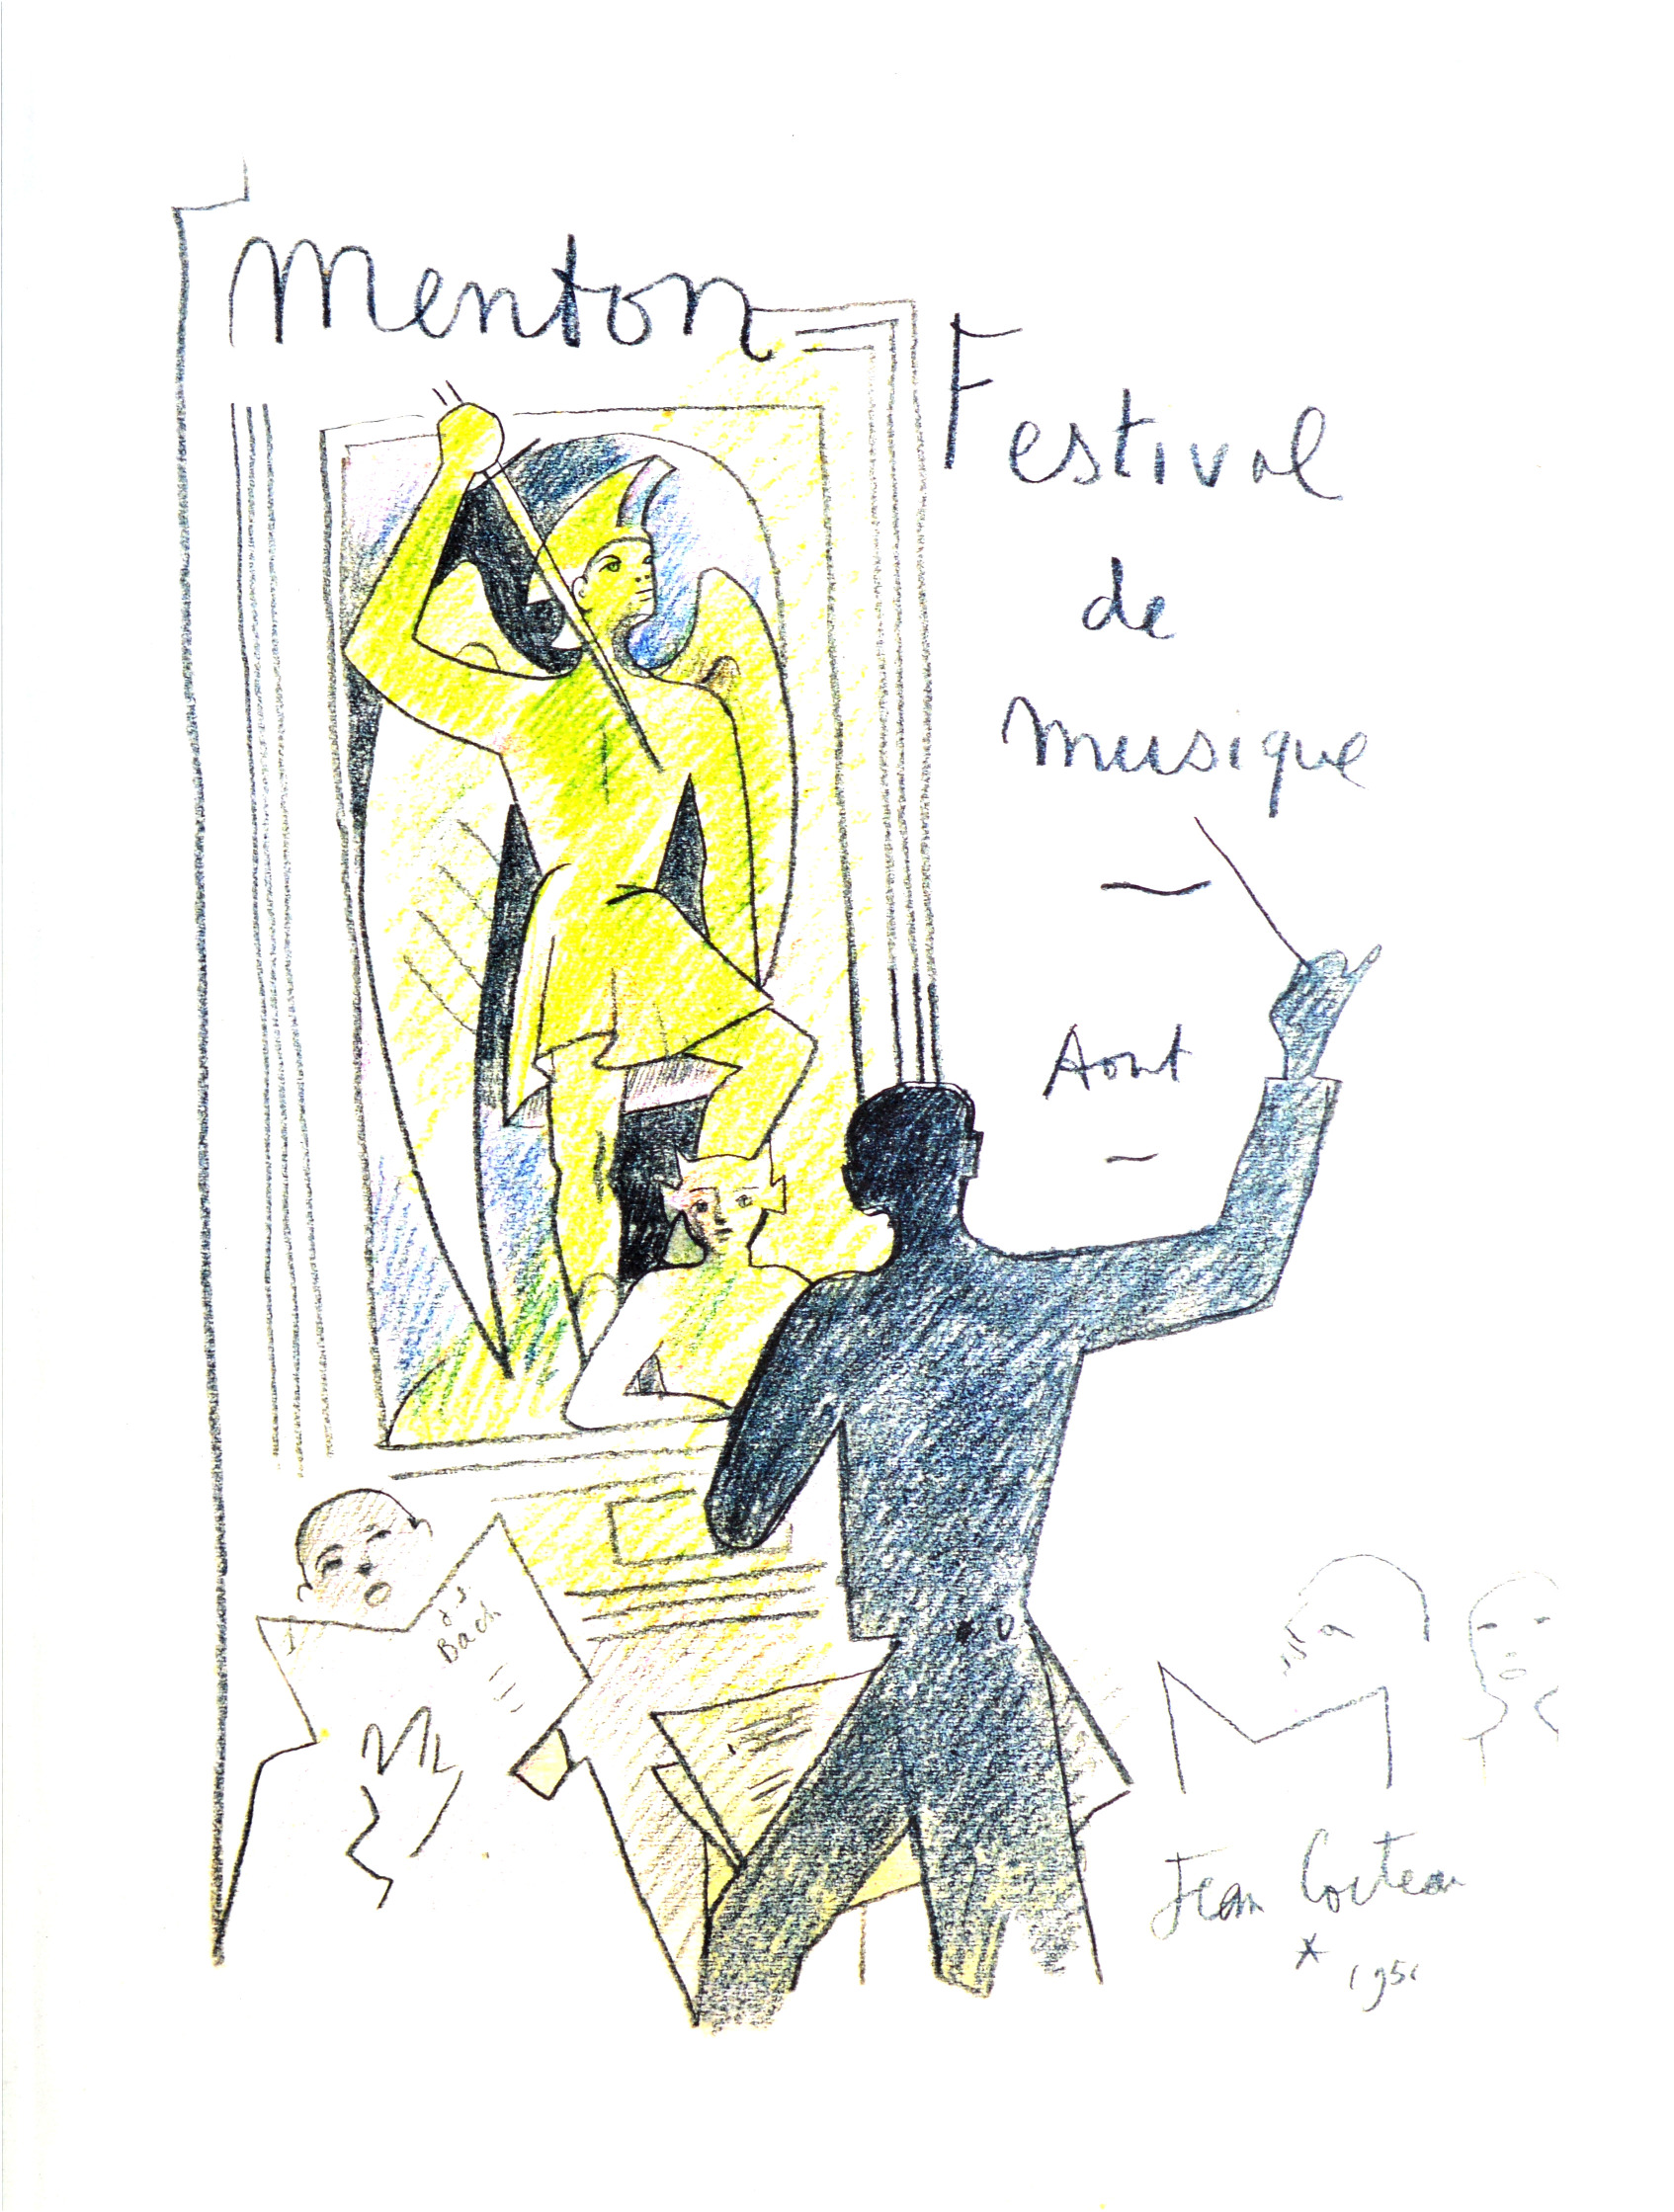 Menton
Festival
de
musique
Aout
J S
Bach
Jean Cocteau
* 1951